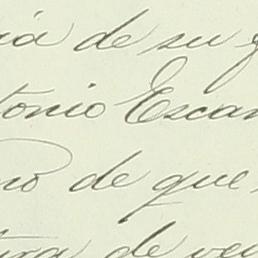 ia de su g
tonio Escan
no de que
tura de ve